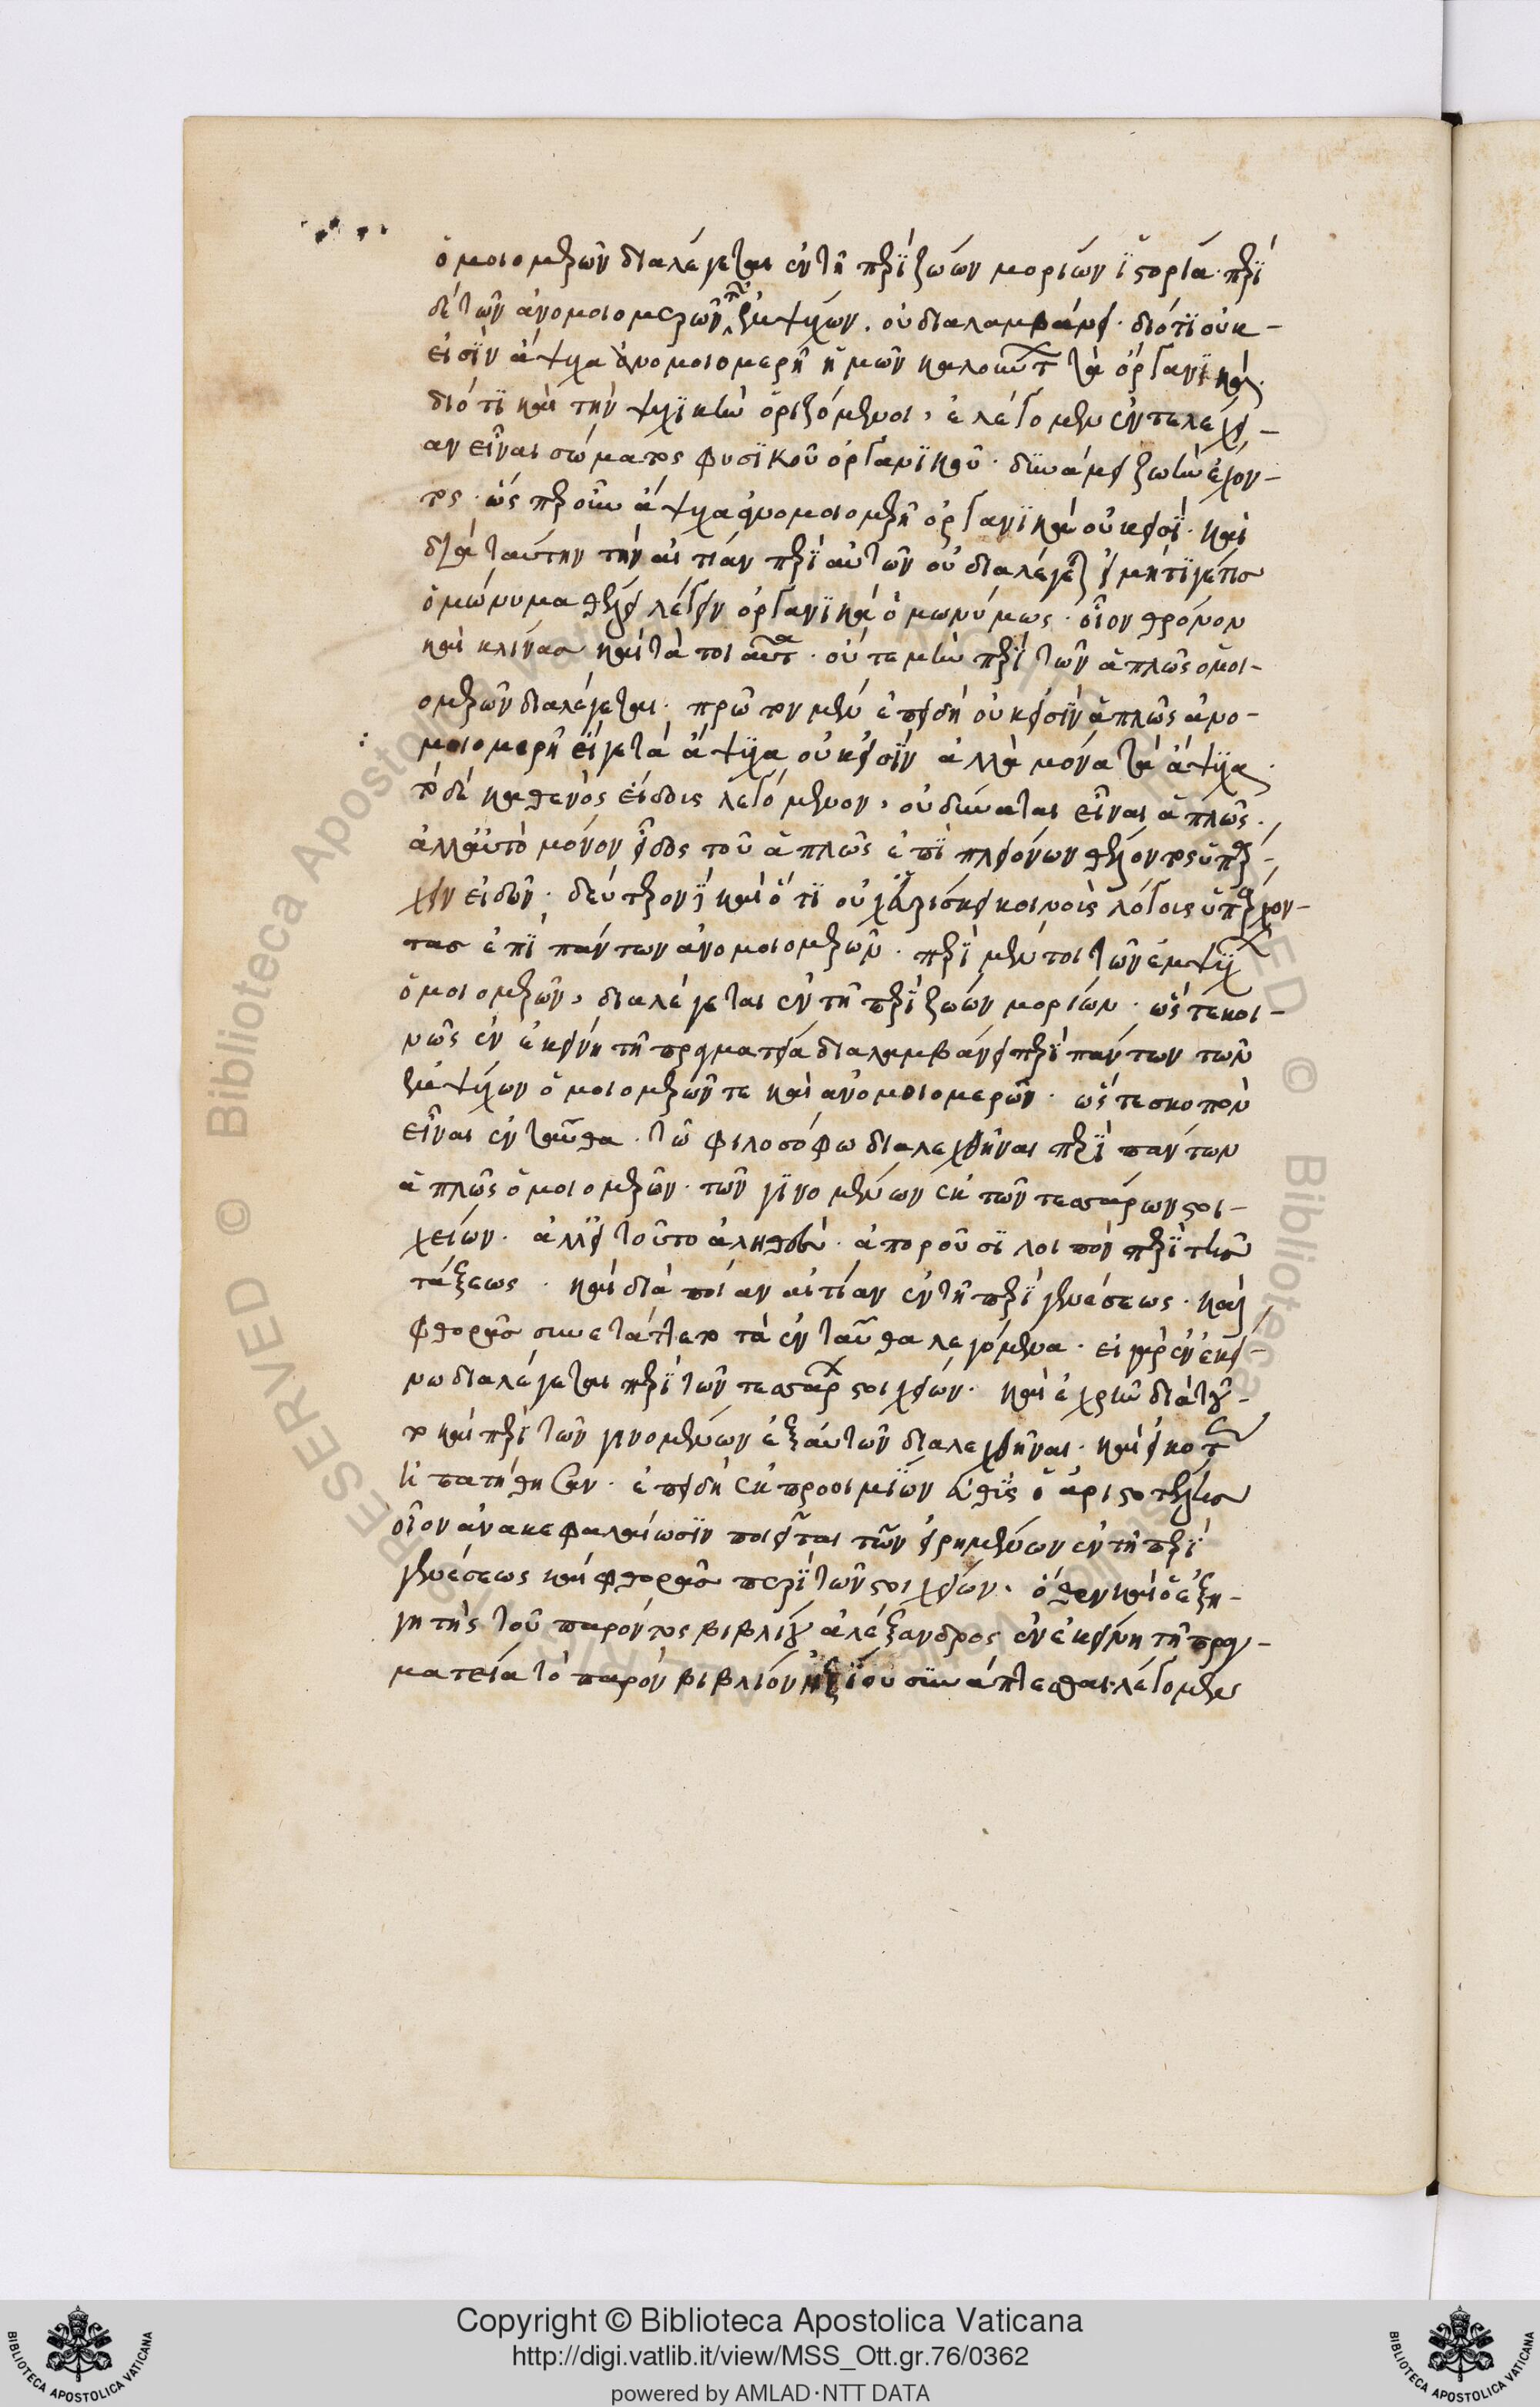 ὁμοιομερῶν διαλέγεται ἐν τῇ περὶ ζώων μορίων ἱστορία· περὶ
δὲ τῶν ἀνομοιομερῶν ἐμψύχων. οὐ διαλαμβάνει· διότι οὐκ-
εἰσὶν ἄψυχα ἀνομοιομερῆ ἡμῶν καλούντων τὰ ὀργανικὰ
διότι καὶ τὴν ψυχικὴν ὁριζόμενοι, ἐλέγομεν ἐντελέχει-
αν εἶναι σώματος φυσικοῦ ὀργανικοῦ· δυνάμει ζωὴν ἔχον-
τος· ὡς περ οὖν ἄψυχα ἀνομοιομερῆ ὀργανικὰ οὐκ εἰσὶ· καὶ
διὰ ταύτην τὴν αἰτίαν περὶ αὐτῶν οὐ διαλέγεται εἰ μήτι γέ τις
ὁμώνυμα θέλει λέγειν ὀργανικὰ ὁμωνύμως· οἷον θρόνον
καὶ κλίνας καὶ τὰ τοιαῦτα· οὔτε μὴν περὶ τῶν ἁπλῶς ὁμοι-
ομερῶν διαλέγεται· πρῶτον μὲν ἐπειδὴ οὐκ εἰσὶν ἁπλῶς ἀνο-
μοιομερῆ εἴγε τὰ ἄψυχα οὐκ εἰσὶν ἀλλὰ μόνα τὰ ἄψυχα.
τὸ δὲ καθ ενὸς εἴδους λεγόμενον, οὐ δύναται εἶναι ἁπλῶς.
ἀλλ αὐτὸ μόνον εἶδος τοῦ ἁπλῶς ἐπὶ πλειόνων θέλοντος ὑπάρ-
χειν εἰδῶν· δεύτερον καὶ ὅτι οὐχ εὑρίσκει κοινοὺς λόγους ὑπάρχον-
τας ἐπὶ πάντων ἀνομοιομερῶν· περὶ μέντοι τῶν ἐμψύχων
ὁμοιομερῶν, διαλέγεται ἐν τῇ περὶ ζώων μορίων· ὥστε κοι-
νῶς ἐν ἐκείνῃ τῇ πραγματεία διαλαμβάνει περὶ πάντων τῶν
ἐμψύχων ὁμοιομερῶν τε καὶ ἀνομοιομερῶν· ὥστε σκοπὸν
εἶναι ἐνταῦθα. τῷ φιλοσόφω διαλεχθῆναι περὶ πάντων
ἁπλῶς ὁμοιομερῶν· τῶν γινομένων ἐκ τῶν τεσσάρων στοι-
χείων. ἀλλ εἰ τοῦτο ἀληθὲς. ἀποροῦσι λοιπὸν περὶ τῆς
τάξεως. καὶ διὰ ποίαν αἰτίαν ἐν τῇ περὶ γενέσεως· καὶ
φθορᾶς συνετάττετο τὰ ἐνταῦθα λεγόμενα. εἰ γὰρ ἐν ἐκεί-
νω διαλέγεται περὶ τῶν τεσσάρων στοιχείων. καὶ ἐχρῆν διὰ τοῦ-
το καὶ περὶ τῶν γινομένων ἐξ αὐτῶν διαλεχθῆναι. καὶ εἰκότως
ἠπατήθησαν. ἐπειδὴ ἐκ προοιμίων εὐθὺς ὁ ἀριστοτέλης
οἷον ἀνακεφαλαίωσιν ποιεῖται τῶν εἰρημένων ἐν τῇ περὶ
γενέσεως καὶ φθορᾶς περὶ τῶν στοιχείων. ὅθεν καὶ ὁ ἐξη-
γητὴς τοῦ παρόντος βιβλίου ἀλέξανδρος ἐν ἐκείνῃ τῇ πραγ-
ματεία τὸ παρὸν βιβλίον ἠξίου συνάπτεσθαι· λέγομεν